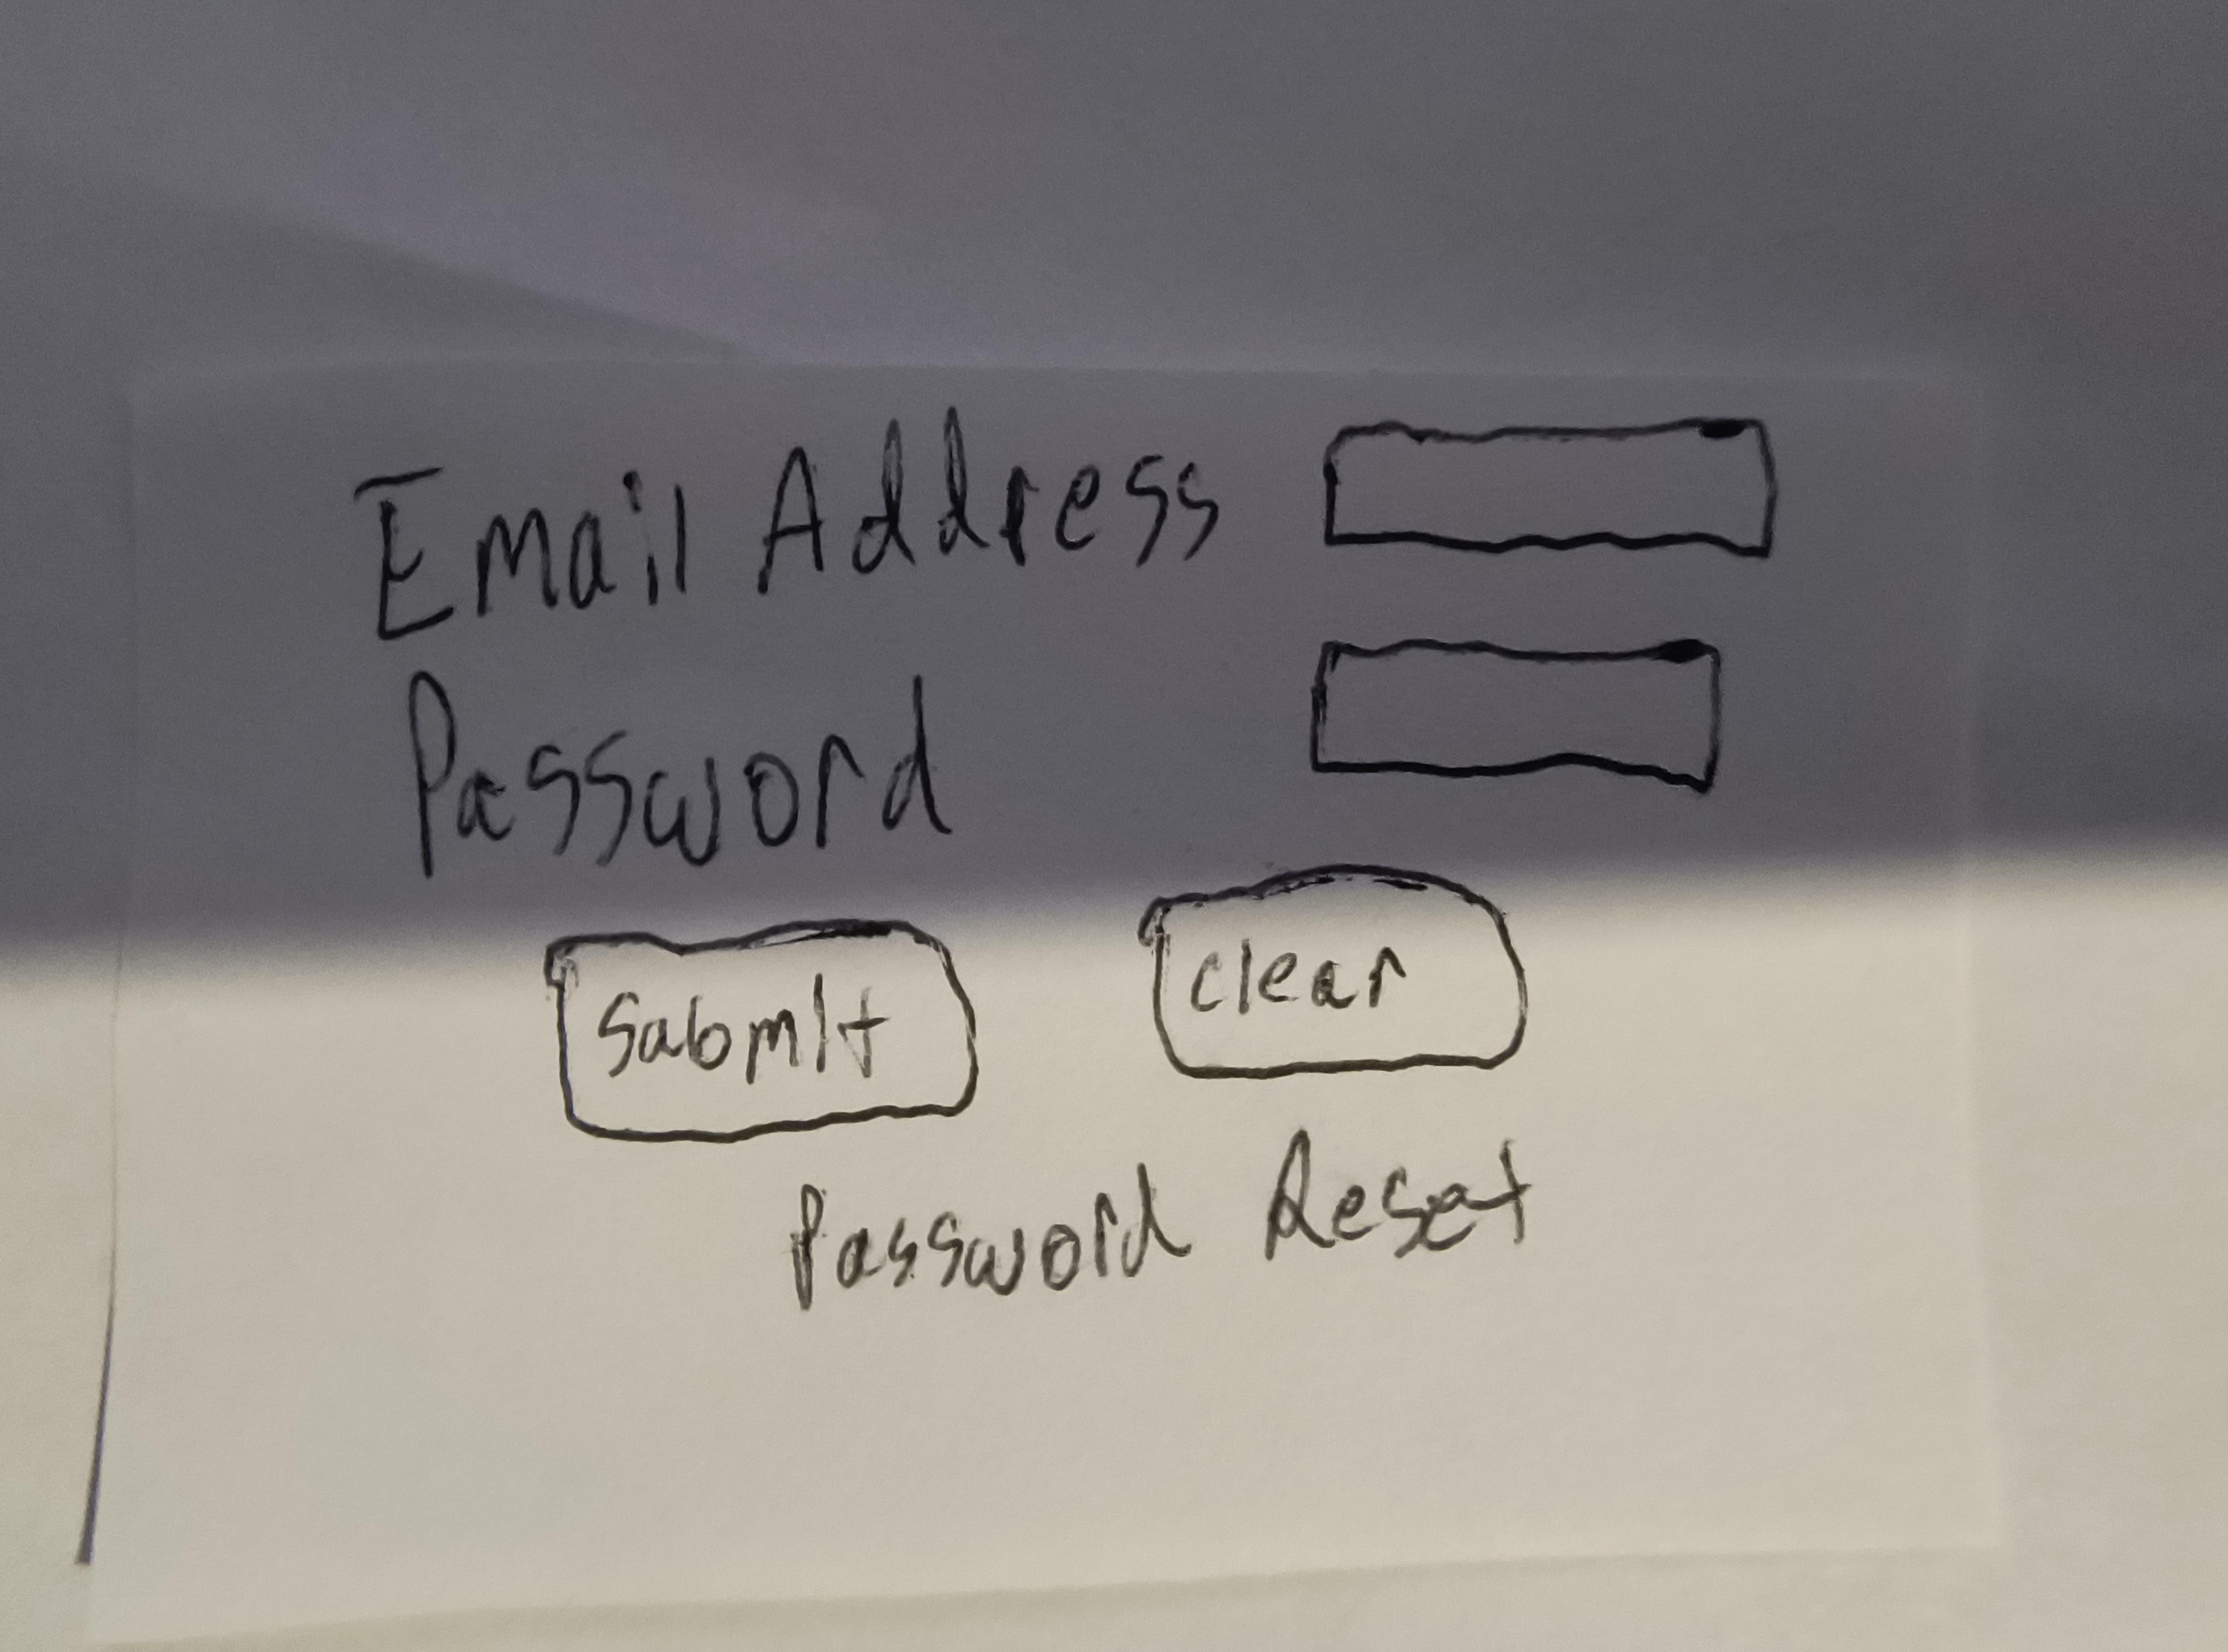 Email Address
Password
Submit clear
Password Reset